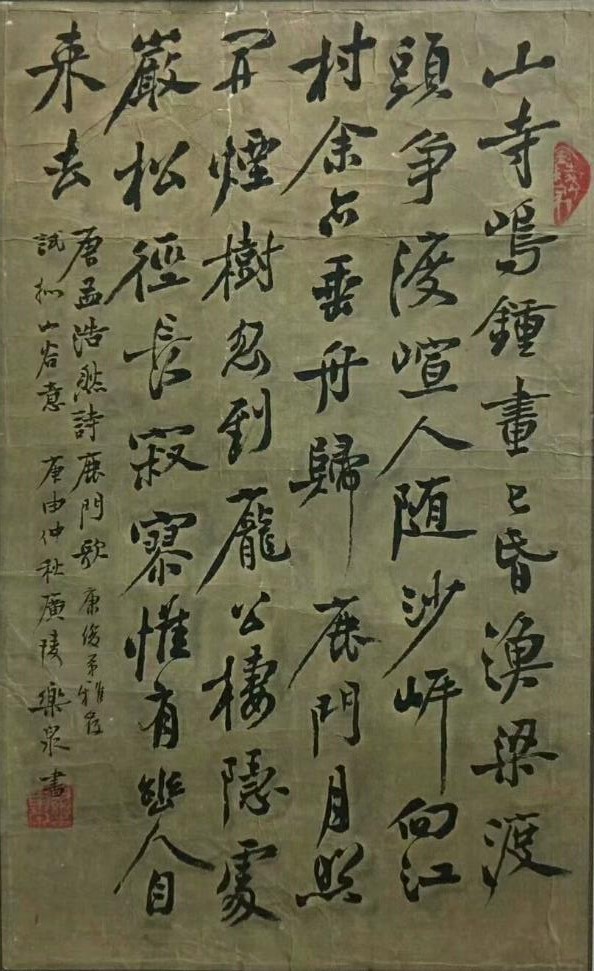 山寺鳴鍾畫已昏漁梁渡
頭爭渡喧人随沙岸向江
村余亦乘舟歸鹿門月照
開煙樹忽到龐公棲隱處
巖松徑長寂寥惟有幽人自
来去
唐孟浩然詩鹿門歌 康俊弟雅
試拟山谷意 庚申仲秋廣陵樂泉書